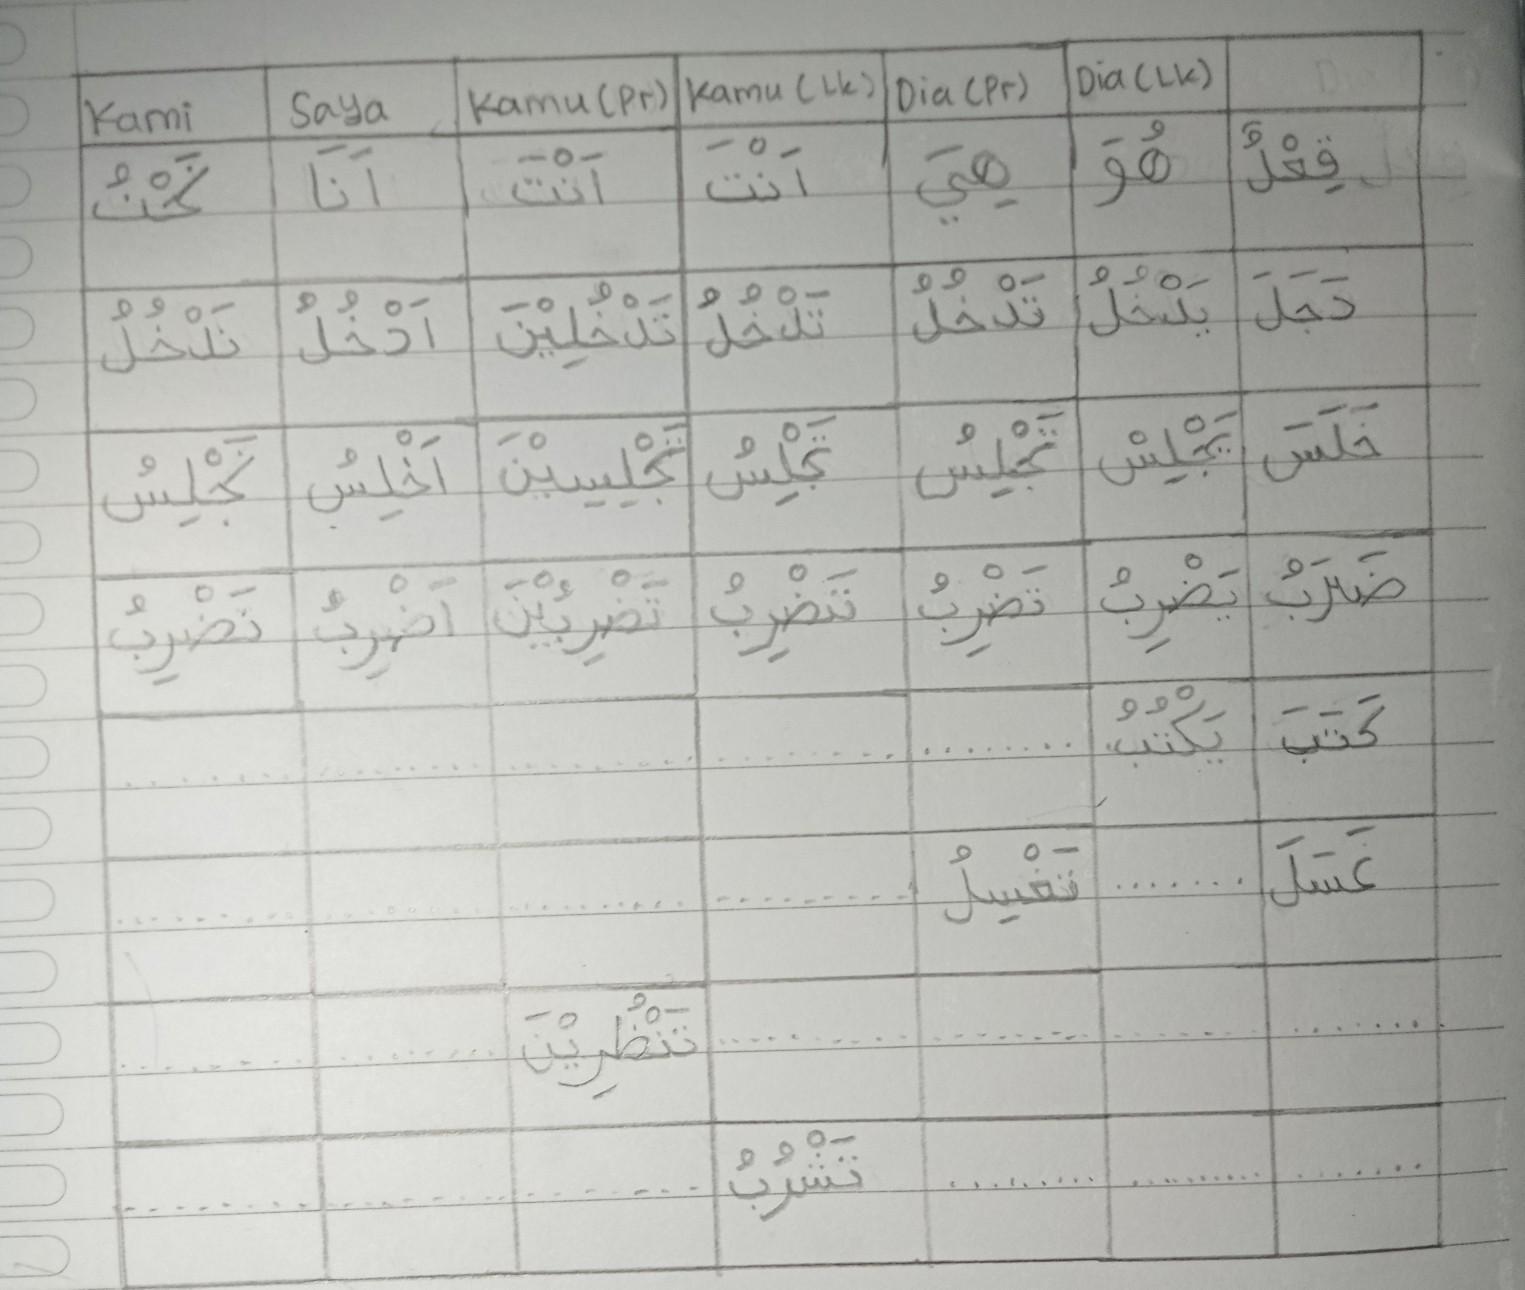 Kami Saya Kamu (Pr) Kamu (Lk) Dia (Pr) Dia (Lk)
فِعْلٌ هُوَ هِيَ اَنْتَ اَنْتَ اَنَا نَحْنُ
دَجَلَ يَدْخُلُ تَدْخُلُ تَدْخُلُ تَدْخُلِيْنَ اَدْخُلُ نَدْخُلُ
خَلَسَ يَجْلِسُ تَجْلِسُ تَجْلِسُ تَجْلِسِيْنَ اَخْلِسُ نَجْلِسُ
ضَرَبُ يَضْرِبُ تَضْرِبُ تَضْرِبُ تَضْرِبُيْنَ اَضْرِبُ نَضْرِبُ
كَتَبَ يَكْتُبُ ........ ........ ........ ........ ........
غَسَلَ ........ تَغْسِلُ ........ ........ ........ ........
........ ........ ........ ........ تَنْظُرِيْنَ ........ ........
........ ........ ........ تَشْرُبُ ........ ........ ........